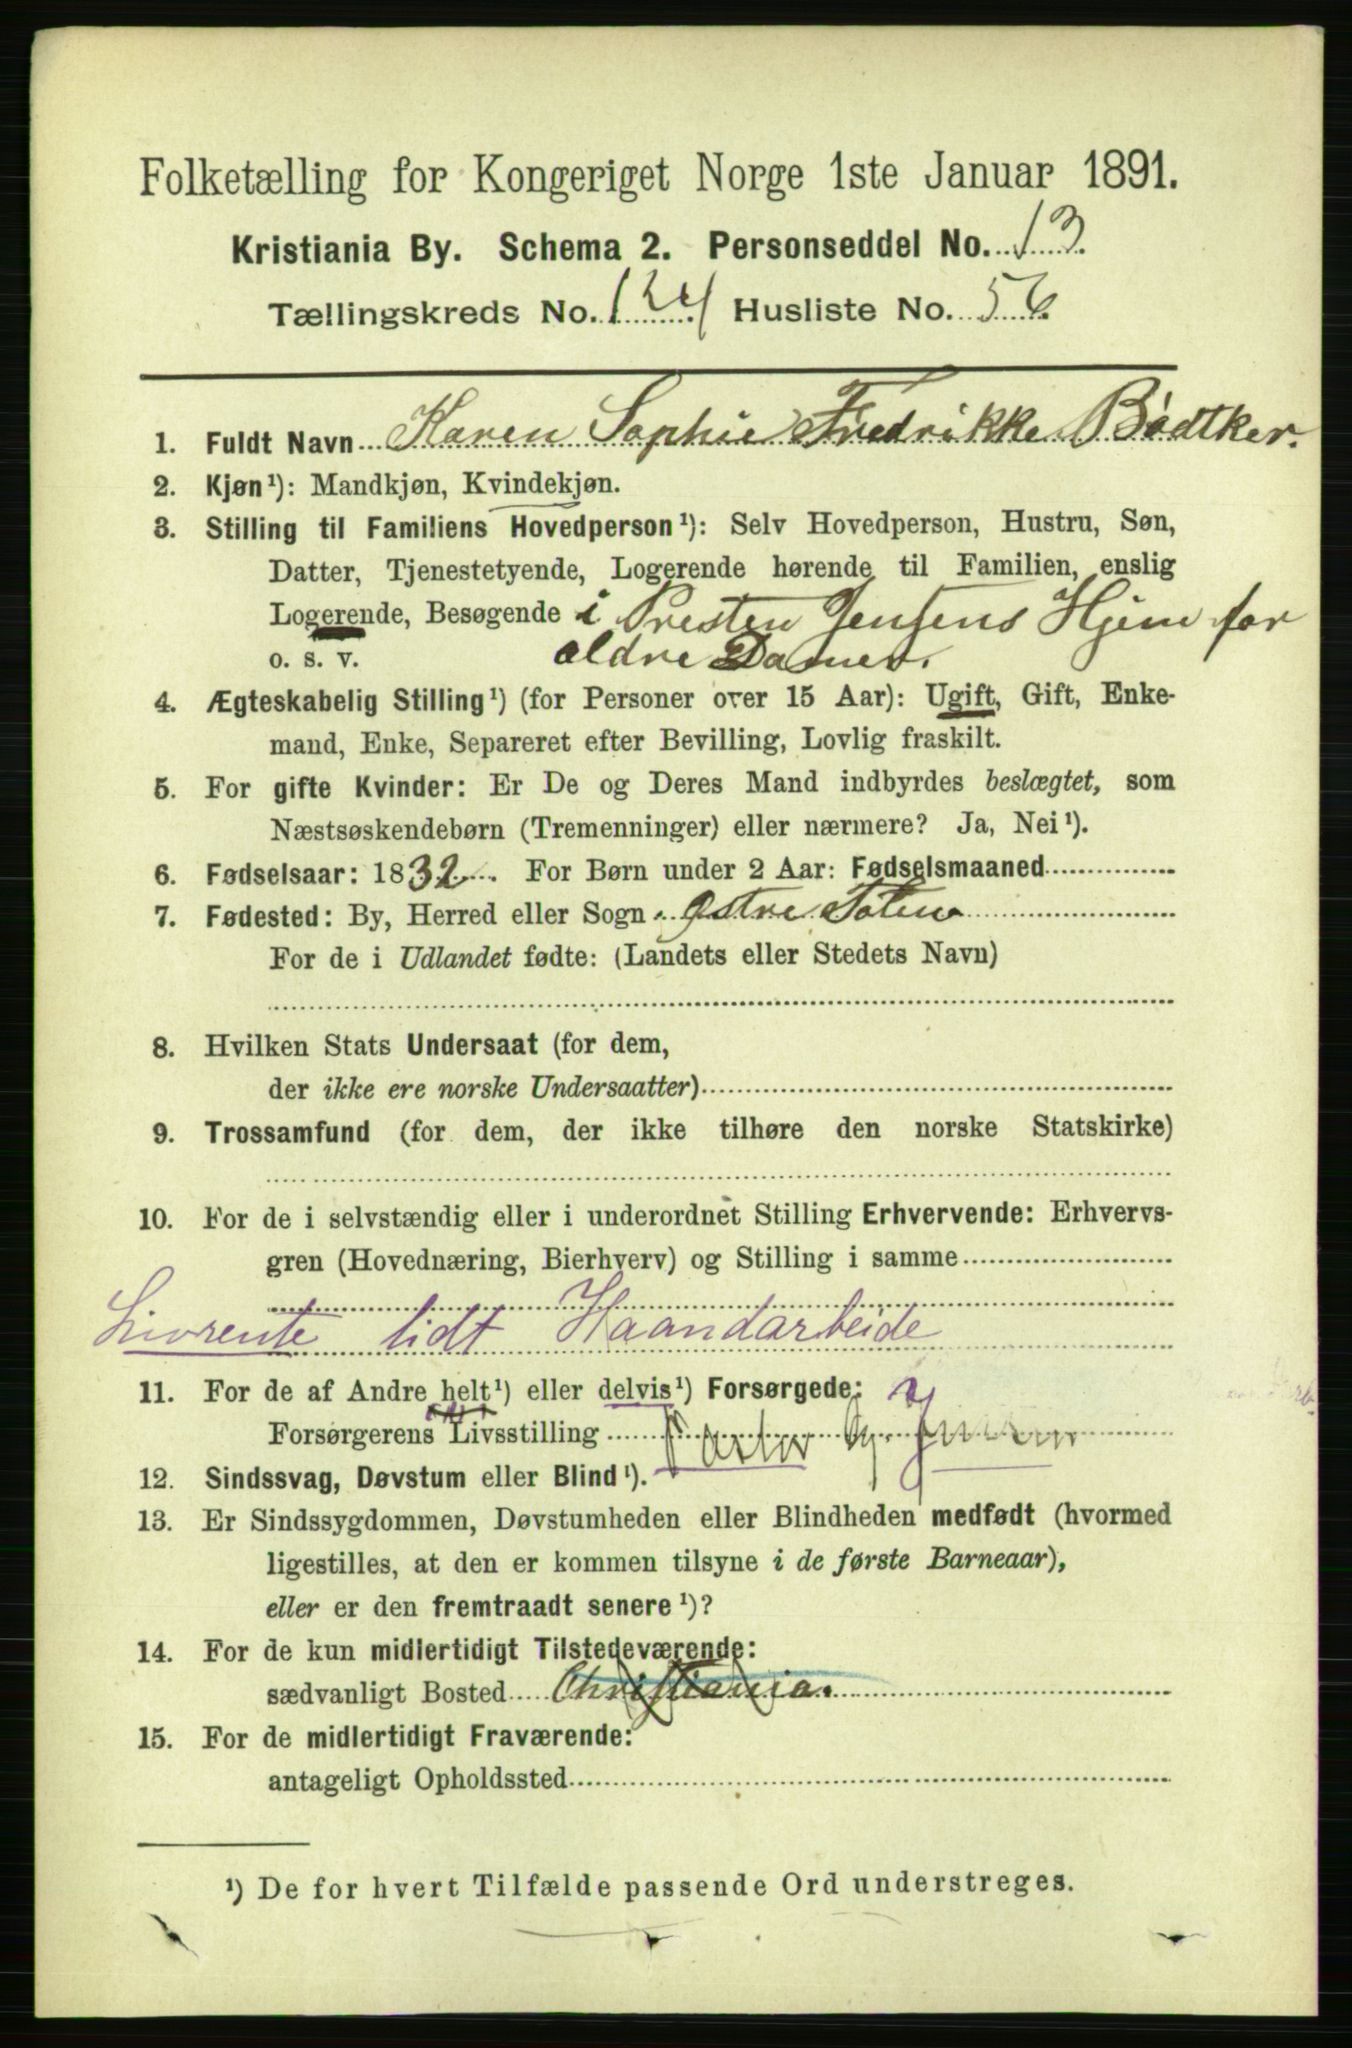 Folketælling for Kongeriget Norge 1ste Januar 1891.
Kristiania By. Schema 2. Personseddel No. 13
Tællingskreds No. 124 Husliste No. 56
1. Fuldt Navn Karen Sophie Fredrikke Bødtker.
2. Kjøn¹): Mandkjøn, Kvindekjøn.
3. Stilling til Familiens Hovedperson¹): Selv Hovedperson, Hustru, Søn,
Datter, Tjenestetyende, Logerende hørende til Familien, enslig
Logerende, Besøgende i Presten Jensens Hjem for
o. s. v. ældre Damer.
4. Ægteskabelig Stilling¹) (for Personer over 15 Aar): Ugift, Gift, Enke-
mand, Enke, Separeret efter Bevilling, Lovlig fraskilt.
5. For gifte Kvinder: Er De og Deres Mand indbyrdes beslægtet, som
Næstsøskendebørn (Tremenninger) eller nærmere? Ja, Nei¹).
6. Fødselsaar: 1832. For Børn under 2 Aar: Fødselsmaaned
7. Fødested: By, Herred eller Sogn Østre Toten
For de i Udlandet fødte: (Landets eller Stedets Navn)
8. Hvilken Stats Undersaat (for dem,
der ikke ere norske Undersaatter)
9. Trossamfund (for dem, der ikke tilhøre den norske Statskirke)
10. For de i selvstændig eller i underordnet Stilling Erhvervende: Erhvervs-
gren (Hovednæring, Bierhverv) og Stilling i samme
Livrente lidt Haandarbeide
11. For de af Andre helt¹) eller delvis¹) Forsørgede:
Forsørgerens Livsstilling Pastor G. Jensen
12. Sindssvag, Døvstum eller Blind¹).
13. Er Sindssygdommen, Døvstumheden eller Blindheden medfødt (hvormed
ligestilles, at den er kommen tilsyne i de første Barneaar),
eller er den fremtraadt senere¹)?
14. For de kun midlertidigt Tilstedeværende:
sædvanligt Bosted Christiania.
15. For de midlertidigt Fraværende:
antageligt Opholdssted
¹) De for hvert Tilfælde passende Ord understreges.